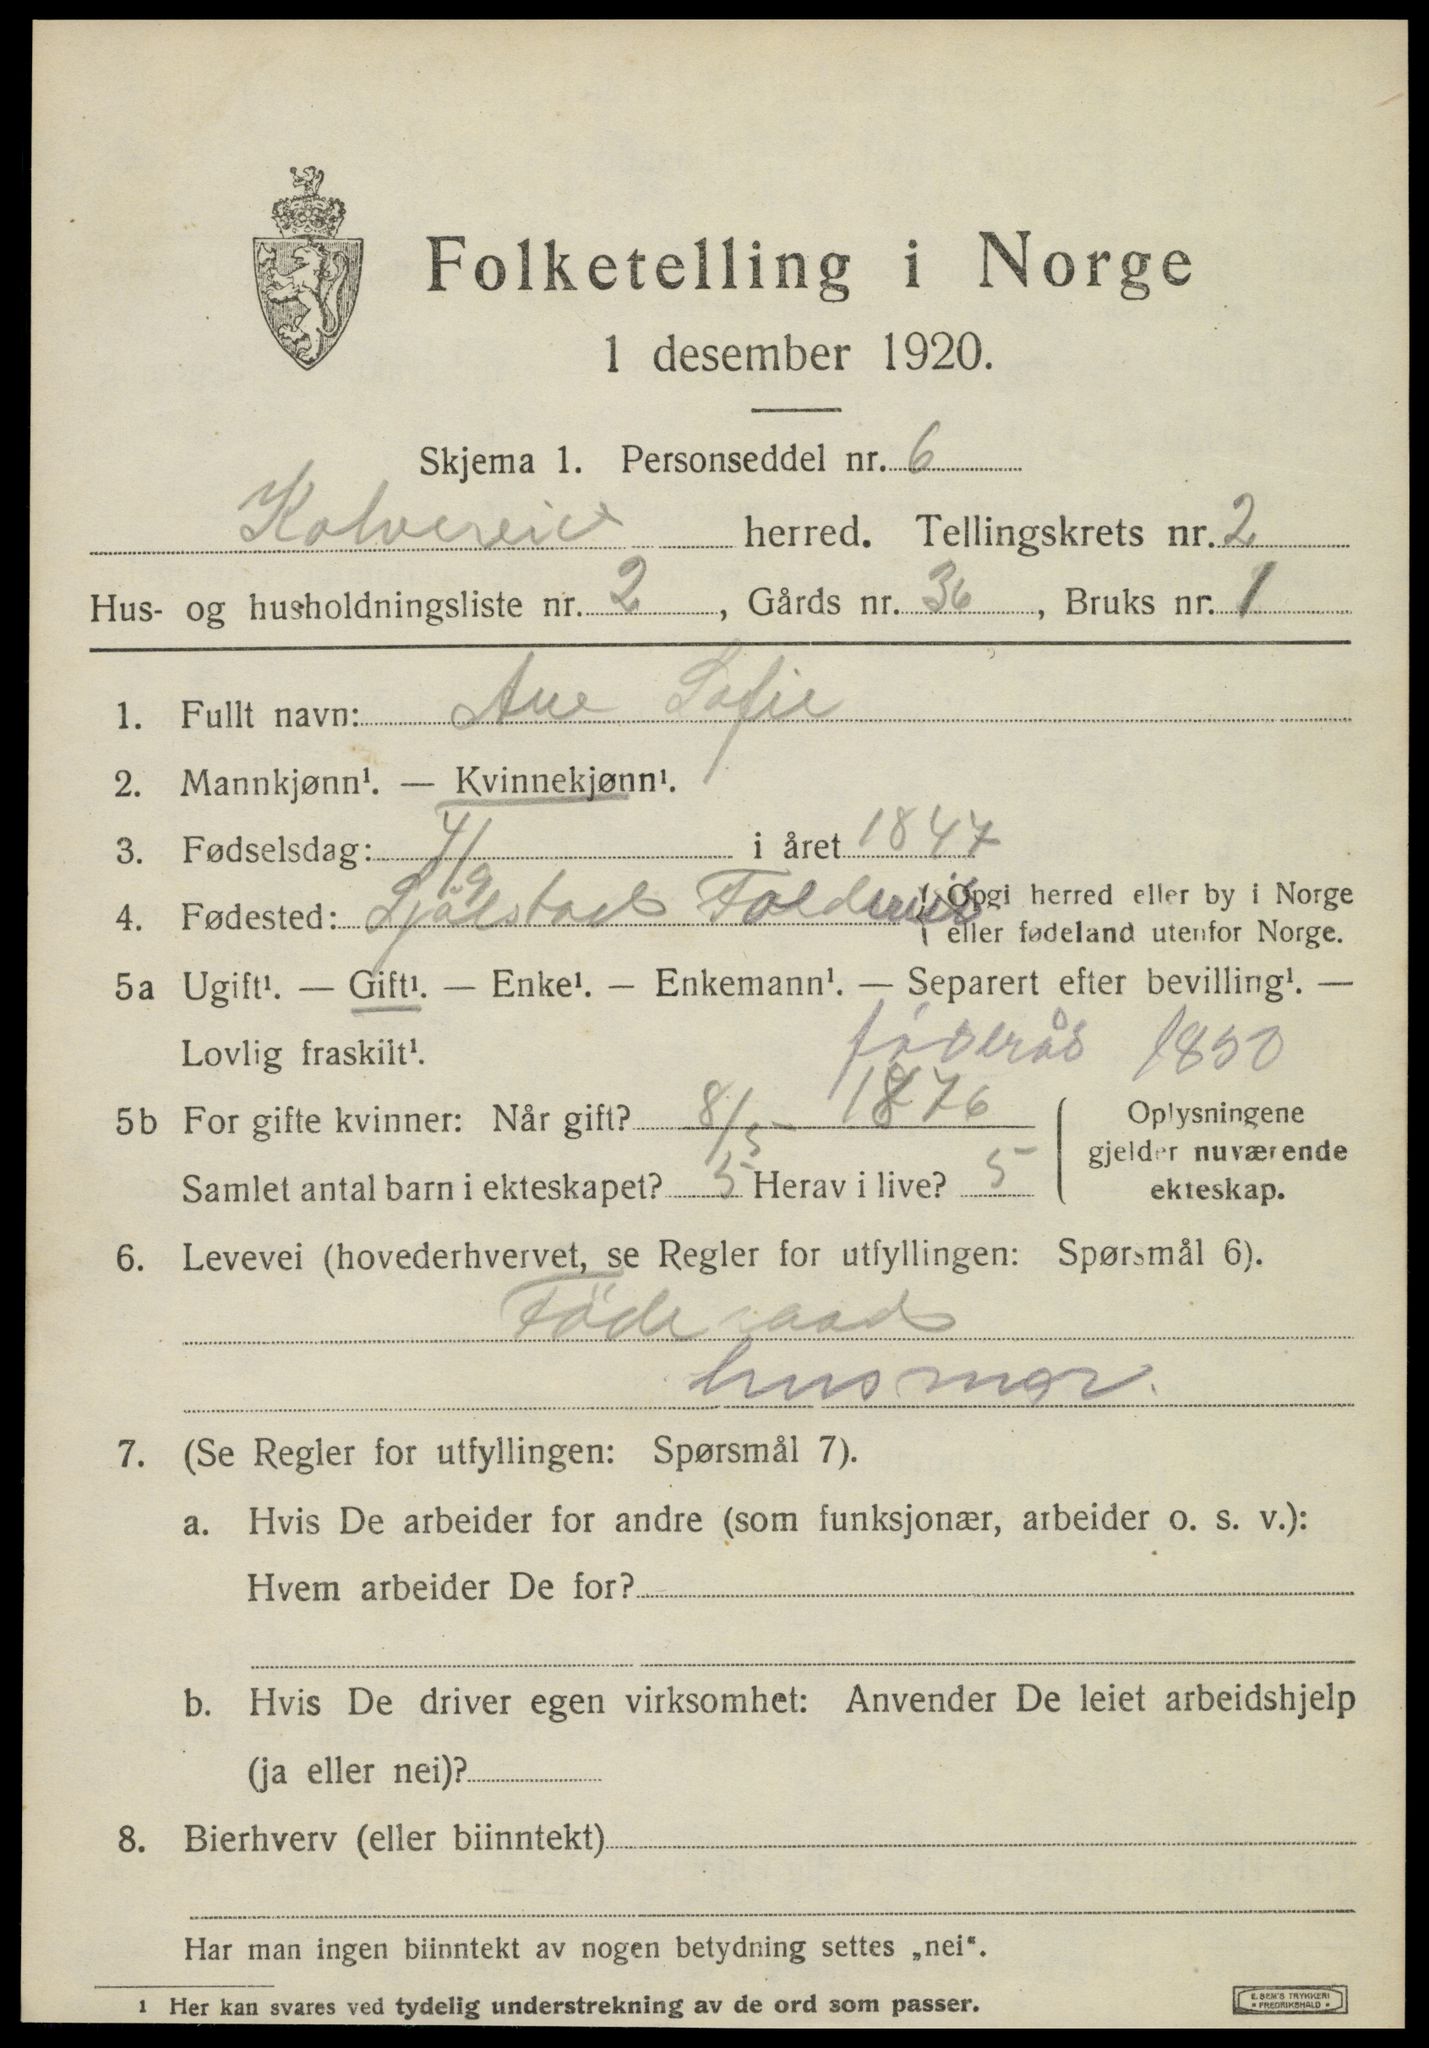 Folketelling i Norge
1 desember 1920.
Skjema 1. Personseddel nr. 6
Kolvereid herred. Tellingskrets nr. 2
Hus- og husholdningsliste nr. 2, Gårds nr. 36, Bruks nr. 1
1. Fullt navn: Ane Sofie
2. Mannkjønn¹. — Kvinnekjønn¹.
3. Fødselsdag: 4/9 i året 1847
4. Fødested: Foldereid (Opgi herred eller by i Norge
eller fødeland utenfor Norge.
5a Ugift¹. — Gift¹. — Enke¹. — Enkemann¹. — Separert efter bevilling¹. —
Lovlig fraskilt¹. föderåd 1850
5b For gifte kvinner: Når gift? 8/5 1876
Samlet antal barn i ekteskapet? 5 Herav i live? 5
Oplysningene
gjelder nuværende
ekteskap.
6. Levevei (hovederhvervet, se Regler for utfyllingen: Spørsmål 6).
Föderaad
husmor.
7. (Se Regler for utfyllingen: Spørsmål 7).
a. Hvis De arbeider for andre (som funksjonær, arbeider o. s. v.):
Hvem arbeider De for?
b. Hvis De driver egen virksomhet: Anvender De leiet arbeidshjelp
(ja eller nei)?
8. Bierhverv (eller biinntekt)
Har man ingen biinntekt av nogen betydning settes „nei“.
¹ Her kan svares ved tydelig understrekning av de ord som passer.
E. SEM'S TRYKKERI
* FREDRIKSHALD *